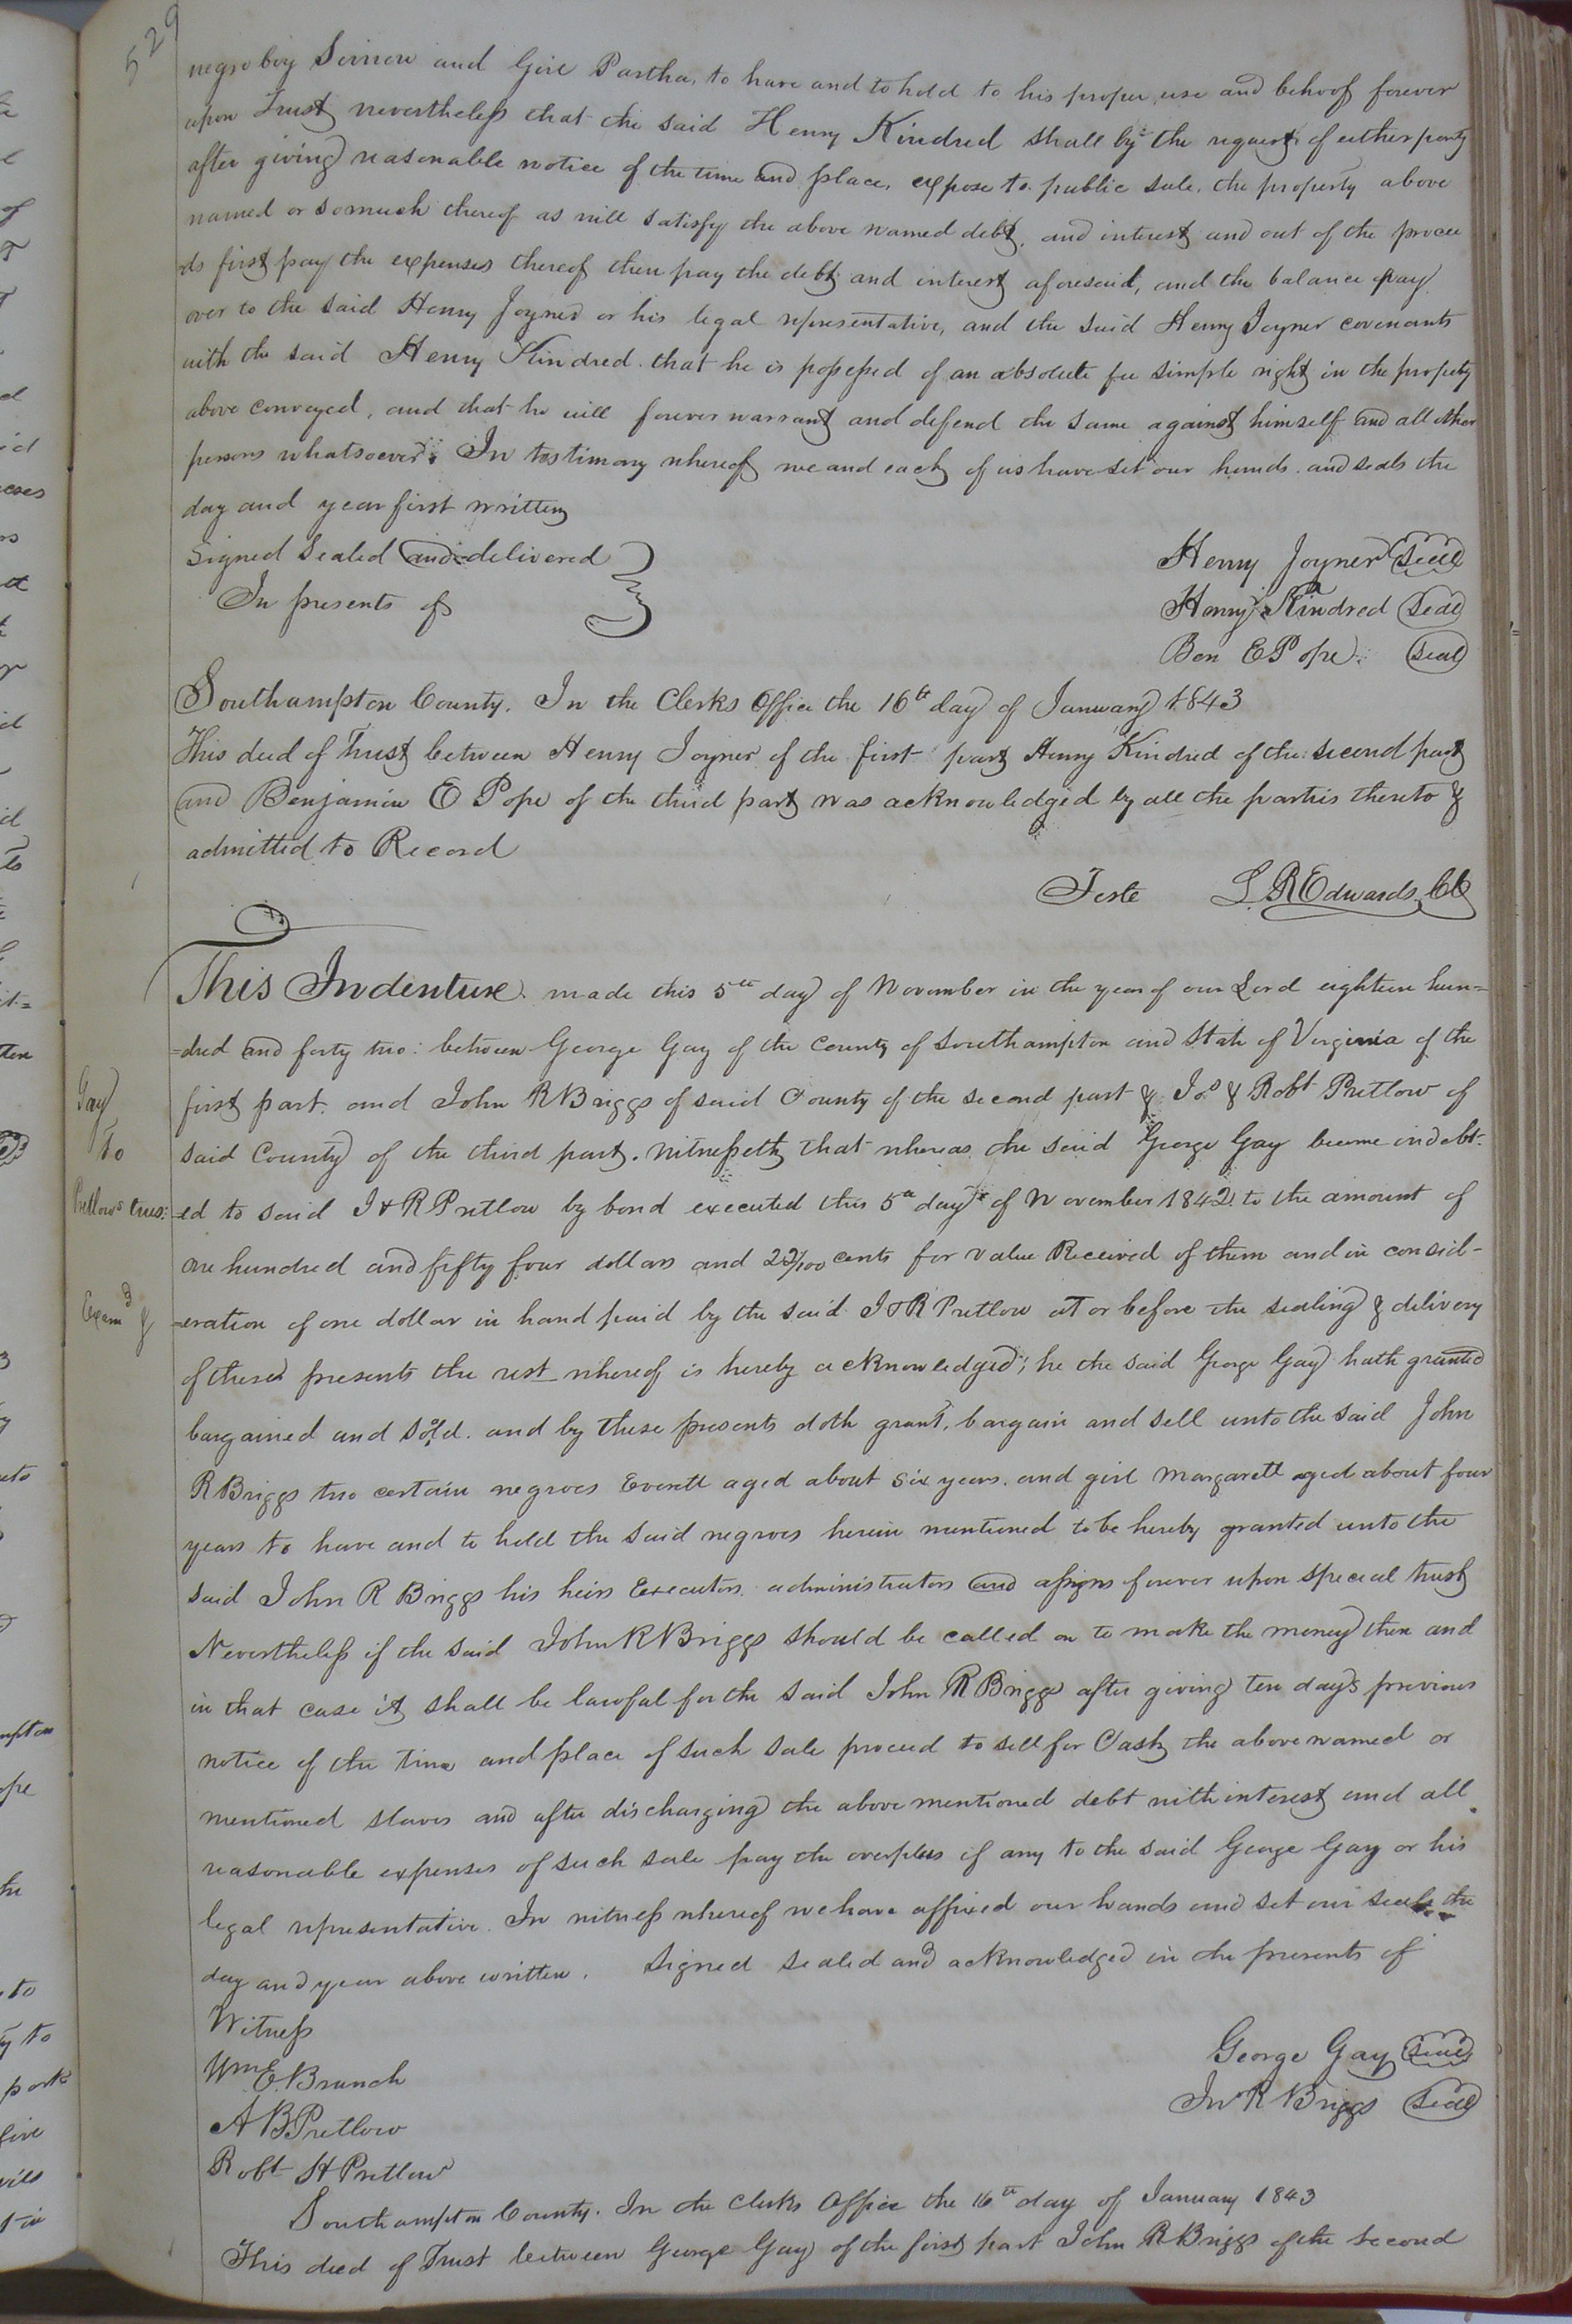 529
negro boy Simon and Girl Partha, to have and to hold to his proper use and behoof forever
upon Trust nevertheless that the said Henry Kindred shall by the request of either party
after giving reasonable notice of the time and place, expose to public sale, the property above
named or so much thereof as will satisfy the above named debt, and interest and out of the procee
ds first pay the expenses thereof then pay the debt and interest aforesaid, and the balance pay
over to the said Henry Joyner or his legal representative, and the said Henry Joyner covenants
with the said Henry Kindred that he is possessed of an absolute fee simple right in the property
above conveyed, and that he will forever warrant and defend the same against himself and all other
persons whatsoever. In testimony whereof we and each of us have set our hands and seals the
day and year first written
Signed Sealed and delivered
In presents of
Henry Joyner Seal
Henry Kindred Seal
Ben E Pope Seal
Southampton County. In the Clerks Office the 16th day of January 1843
This deed of Trust between Henry Joyner of the first part Henry Kindred of the second part
and Benjamin E Pope of the third part was acknowledged by all the parties thereto &
admitted to Record
Teste L R Edwards Clk
This Indenture made this 5th day of November in the year of our Lord eighteen hun=
=dred and forty two: between George Gay of the County of Southampton and State of Virginia of the
Gay
to
Pretlows trus:
Examd &
first part. and John R Briggs of said County of the second part & Jos & Robt Pretlow of
said County of the third part. Witnesseth that whereas the said George Gay became indebt-
-ed to said J & R Pretlow by bond executed this 5th day of November 1842 to the amount of
one hundred and fifty four dollars and 22/100 cents for value Received of them and in consid-
-eration of one dollar in hand paid by the said J & R Pretlow at or before the sealing & delivery
of these presents the rest whereof is hereby acknowledged; he the said George Gay hath granted
bargained and sold. and by these presents doth grant, bargain and sell unto the said John
R Briggs two certain negroes Everett aged about six years. and girl Margarett aged about four
years to have and to hold the said negroes herein mentioned to be hereby granted unto the
said John R Briggs his heirs Executors administrators and assigns forever upon special trust
Nevertheless if the said John R Briggs should be called on to make the money then and
in that case it shall be lawful for the said John R Briggs after giving ten days previous
notice of the time and place of such sale proceed to sell for Cash the above named or
mentioned slaves and after discharging the above mentioned debt with interest and all
reasonable expenses of such sale pay the overplus if any to the said George Gay or his
legal representative. In witness whereof we have affixed our hands and set our seals the
day and year above written. Signed sealed and acknowledged in the presents of
Witness
Wm E. Branch
A B Pretlow
Robt H Pretlow
George Gay Seal
Jno R Briggs Seal
Southampton County. In the Clerks Office the 16th day of January 1843
This deed of Trust between George Gay of the first part John R Briggs of the second